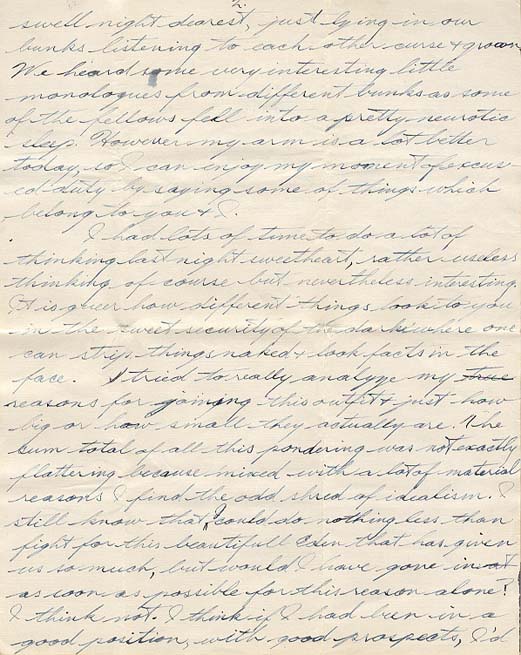 2.
swell night dearest, just lying in our
bunks listening to each other curse & groan.
We heard some very interesting little
monologues from different bunks as some
of the fellows fell into a pretty neurotic
sleep. However my arm is a lot better
today, so I can enjoy my moment of excus-
ed duty by saying some of things which
belong to you & I.
I had lots of time to do a lot of
thinking last night sweetheart, rather useless
thinking of course but nevertheless interesting.
It is queer how different things look to you
in the sweet security of the dark where one
can strip things naked & look facts in the
face. I tried to really analyze my true
reasons for joining this outfit & just how
big or how small they actually are. The
sum total of all this pondering was not exactly
flattering because mixed with a lot of material
reasons I find the odd shred of idealism. I
still know that I could do nothing less than
fight for this beautifull Eden that has given
us so much, but would I have gone in at
as soon as possible for this reason alone?
I think not. I think if I had been in a
good position, with good prospects, I'd